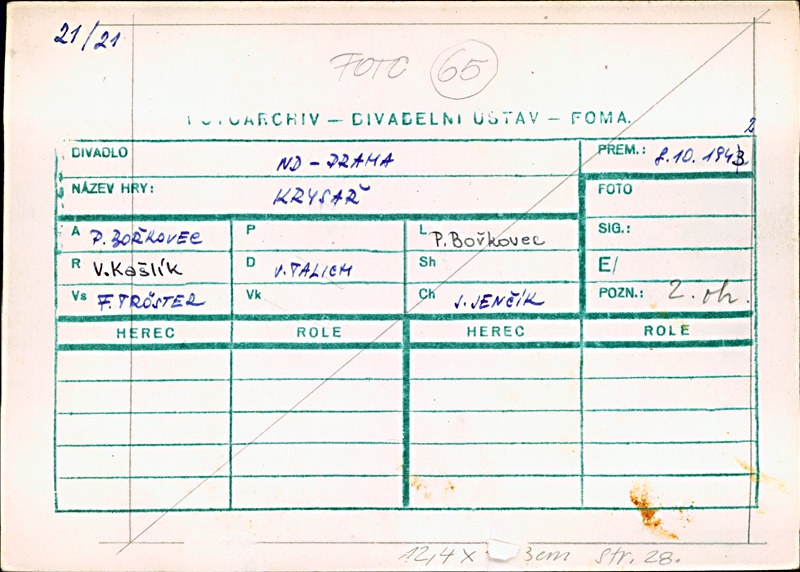 21/21
FOTO 65
FOTOARCHIV — DIVADELNÍ ÚSTAV — FOMA
2
DIVADLO ND - DRAMA PREM.: 8.10.1943
NÁZEV HRY: KRYSAŘ FOTO
A P. BOŘKOVEC P L P. Bořkovec SIG.:
R V. Kašlík D V. TALICH Sh E/
Vs F. TRÖSTER Vk Ch J. JENČÍK POZN.: 2. oh.
HEREC ROLE HEREC ROLE
12,4 x 3cm str. 28.